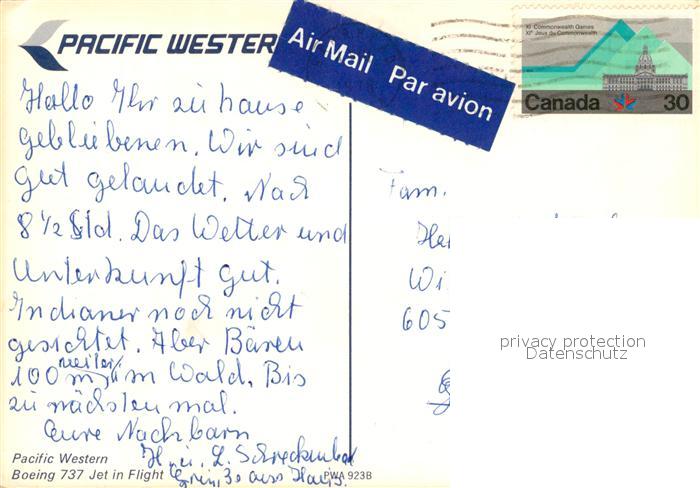 PACIFIC WESTERN
Air Mail Par avion
XI Commonwealth Games
XIes Jeux du Commonwealth
Canada 30
Hallo Ihr zu hause
gebliebenen. Wir sind
gut gelandet. Nach
8 1/2 Std. Das Wetter und
Unterkunft gut.
Indianer noch nicht
gesichtet. Aber Bären
100 m weiter im Wald. Bis
zu nächsten mal.
Eure Nachbarn
H. u. L.
Fam.
Wi
605
privacy protection
Datenschutz
Pacific Western
Boeing 737 Jet in Flight
PWA 923B